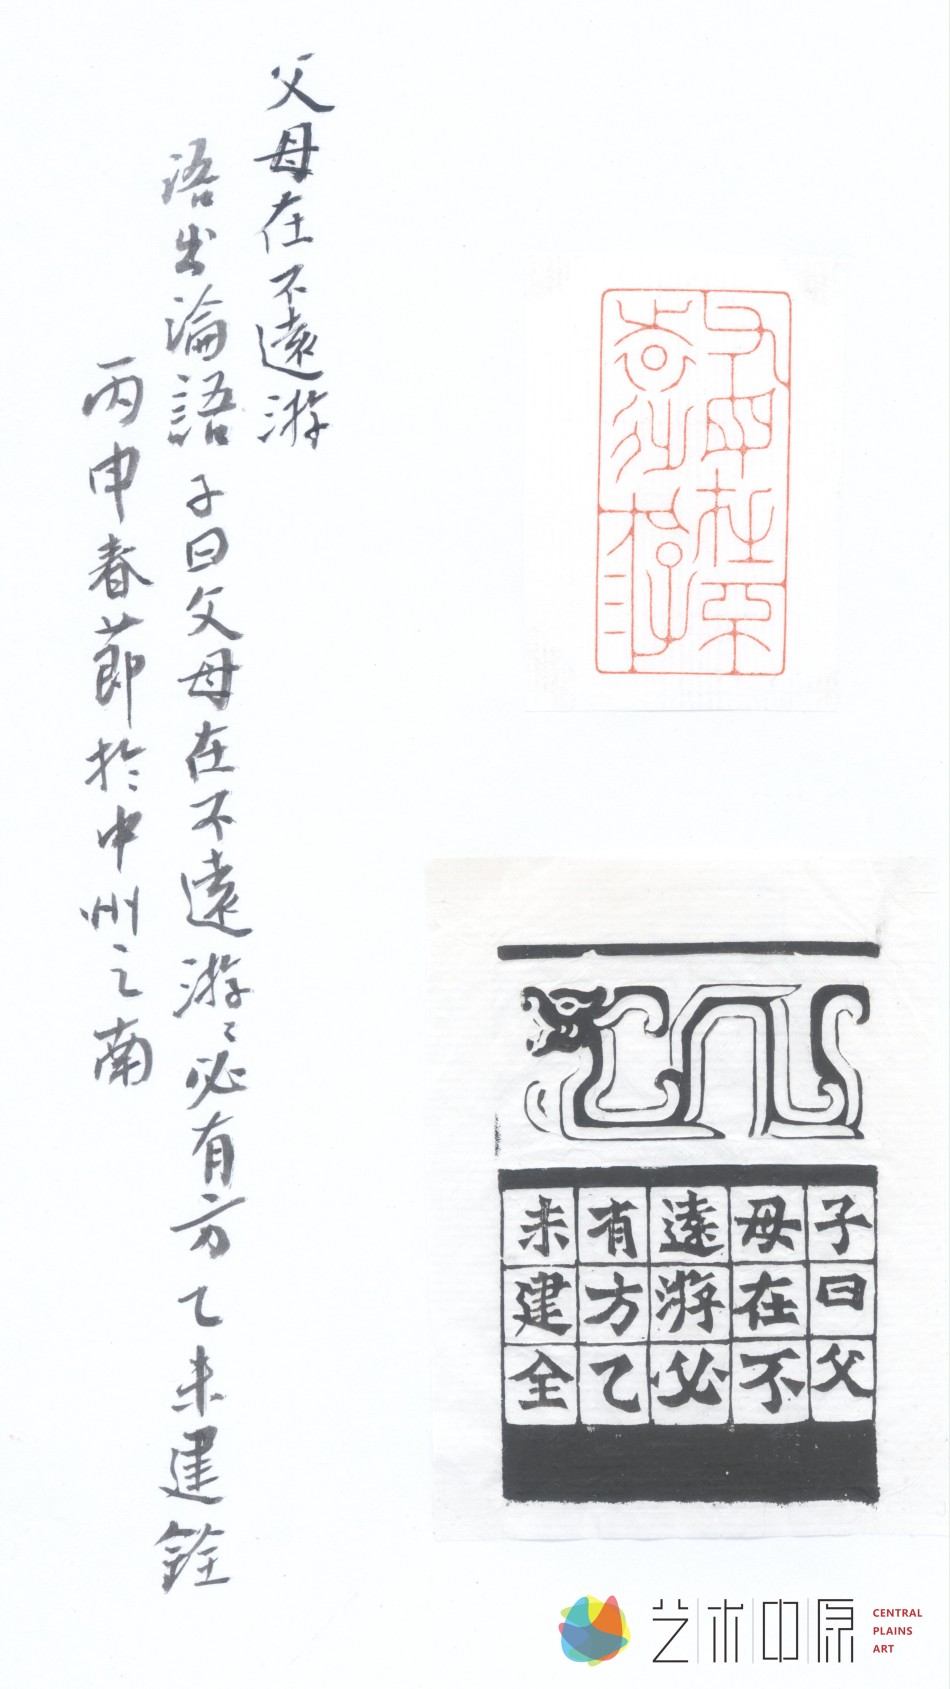 父母在不
遠游
子曰父
母在不
遠游必
有方乙
未建全
父母在不遠游
语出論語子曰父母在不遠游〻必有方乙未建銓
丙申春節於中州之南
艺术中原
CENTRAL
PLAINS
ART